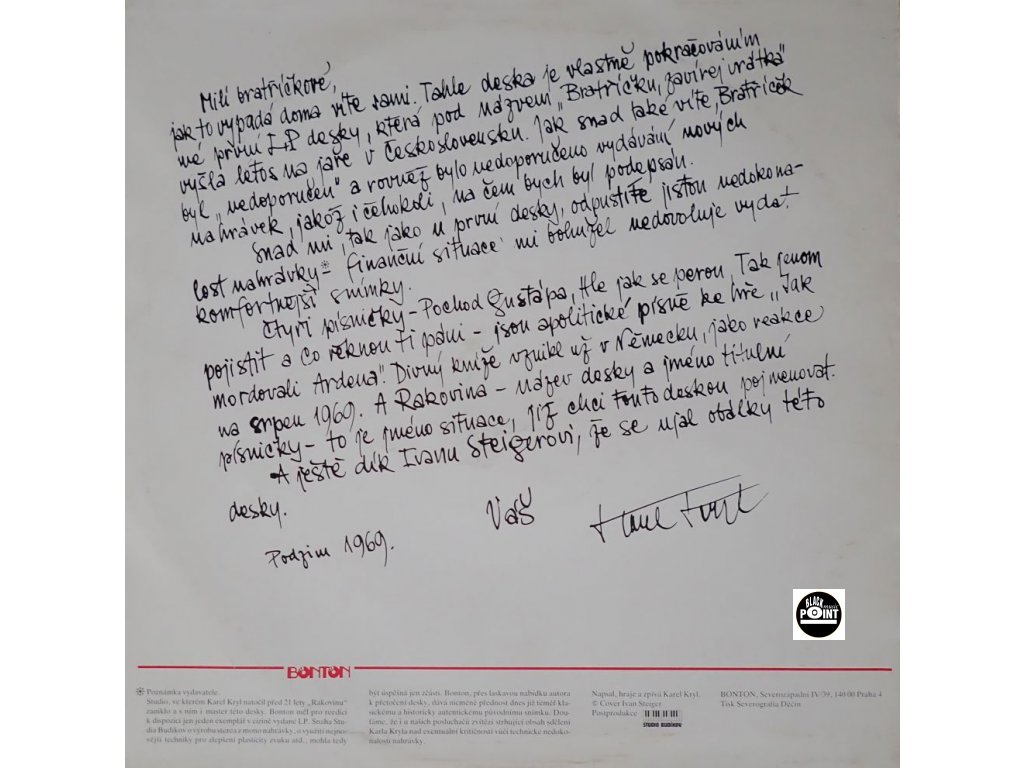 Milí bratříčkové,
jak to vypadá doma víte sami. Tahle deska je vlastně pokračováním
mé první LP desky, která pod názvem „Bratříčku, zavírej vrátka"
vyšla letos na jaře v Československu. Jak snad také víte, Bratříček
byl „nedoporučen" a rovněž bylo nedoporučeno vydávání nových
nahrávek, jakož i čehokoli, na čem bych byl podepsán.
Snad mi, tak jako u první desky, odpustíte jistou nedokona-
lost nahrávky - finanční situace mi bohužel nedovoluje vydat
komfortnější snímky.
Čtyři písničky - Pochod Gustápa, Hle jak se perou, Tak jenom
pojistit a Co řeknou ti páni - jsou apolitické písně ke hře „Jak
mordovali Ardena". Divný kníže vznikl už v Německu, jako reakce
na srpen 1969. A Rakovina - název desky a jméno titulní
písničky - to je jméno situace, již chci touto deskou pojmenovat.
A ještě dík Ivanu Steigerovi, že se ujal obálky této
desky.
Váš Karel Kryl
Podzim 1969.
BLACK music
POINT
BONTON
Poznámka vydavatele.
Studio, ve kterém Karel Kryl natočil před 21 lety „Rakovinu"
zaniklo a s ním i master této desky. Bonton měl pro reedici
k dispozici jen jeden exemplář v cizině vydané LP. Snaha Stu-
dia Budíkov o výrobu sterea z mono nahrávky, o využití nejno-
vější techniky pro zlepšení plasticity zvuku atd., mohla tedy
být úspěšná jen zčásti. Bonton, přes laskavou nabídku autora
k přetočení desky, dává nicméně přednost dnes již téměř kla-
sickému a historicky autentickému původnímu snímku. Dou-
fáme, že i u našich posluchačů zvítězí strhující obsah sdělení
Karla Kryla nad eventuální kritičností vůči technické nedoko-
nalosti nahrávky.
Napsal, hraje a zpívá Karel Kryl.
© Cover Ivan Steiger
Postprodukce
STUDIO BUDÍKOV
BONTON, Severozápadní IV/39, 140 00 Praha 4
Tisk Severografia Děčín